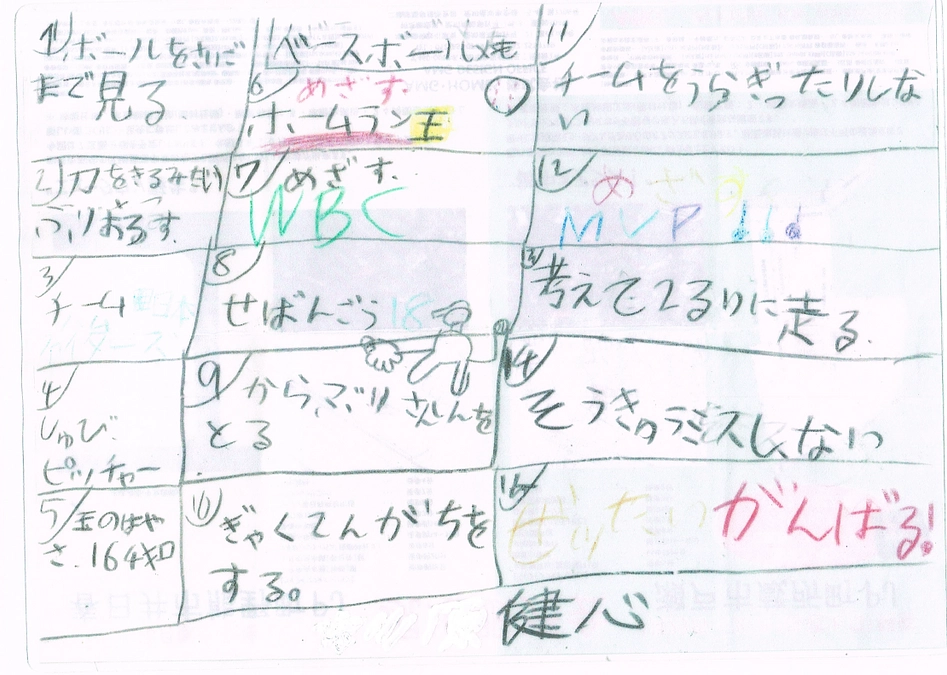 1 ボールをさいご
まで見る
2 刀をきるみたい
ふりおろす.
3
チーム
イダース
4
しゅび.
ピッチャー
5 玉のはや
さ.164キロ
ベースボールしめも
6 めざす.
ホームラン王
7 めざす.
WBC
8
せばんごう18
9 からぶり さんしんを
とる
10 ぎゃくてんがちを
する。
11
チームをうらぎったりしな
い
12 めざす
MVP!!!
13 考えて2るいに
走る.
14
そうきゅうミスしない
15 ぜったい がんばる!
健心